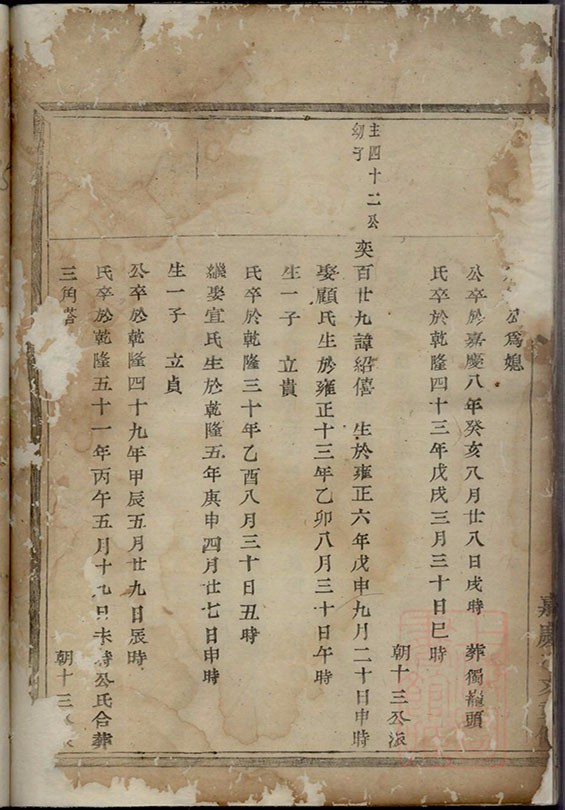 公爲媳
公卒於嘉慶八年癸亥八月廿八日戌時 葬獨龍頭
氏卒於乾隆四十三年戊戌三月三十日巳時
朝十三公派
主四十二公
幼子
奕百廿九諱紹僖 生於雍正六年戊申九月二十日申時
娶顧氏生於雍正十三年乙卯八月三十日午時
生一子 立貴
氏卒於乾隆三十年乙酉八月三十日丑時
繼娶宣氏生於乾隆五年庚申四月廿七日申時
生一子 立貞
公卒於乾隆四十九年甲辰五月廿九日辰時
氏卒於乾隆五十一年丙午五月十九日未時公氏合葬
三角塔 朝十三
嘉慶